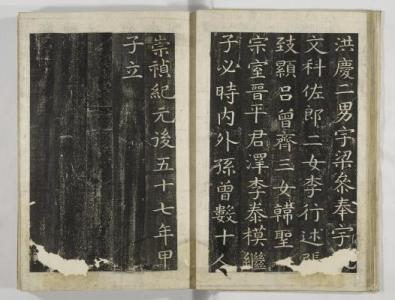 洪慶二男字梁叅奉宇
文科佐郎二女李行述張
𢻃顯呂曾齊三女韓聖
宗室晋平君澤李泰模繼
子必時內外孫曾數十人
崇禎紀元後五十七年甲
子立